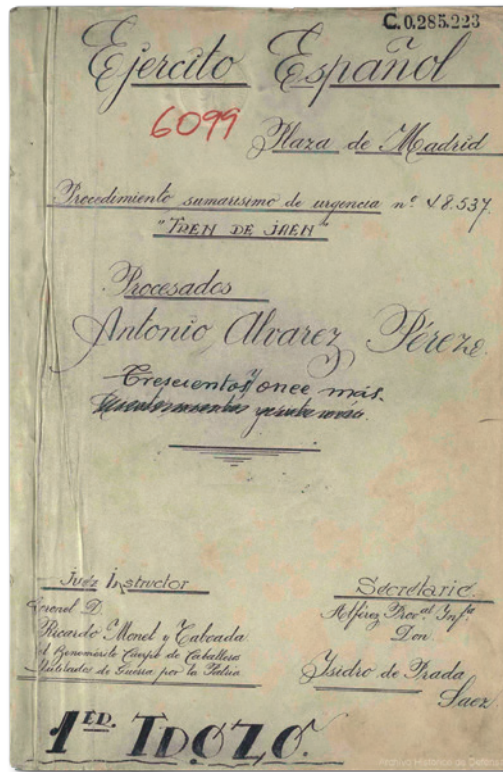 C.0.285.223
Ejercito Español
6099
Plaza de Madrid
Procedimiento sumarisimo de urgencia nº 48.537.
"TREN DE JAEN"
Procesados
Antonio Alvarez Pérez
Trescientos y once más.
Juez Instructor
Coronel D.
Ricardo Monet y Taboada
el Benemérito Cuerpo de Caballeros
Mutilados de Guerra por la Patria
Secretario
Alférez Prov.al Inf.ª
Don
Isidro de Prada
Saez
1ER. TROZO.
Archivo Histórico de Defensa